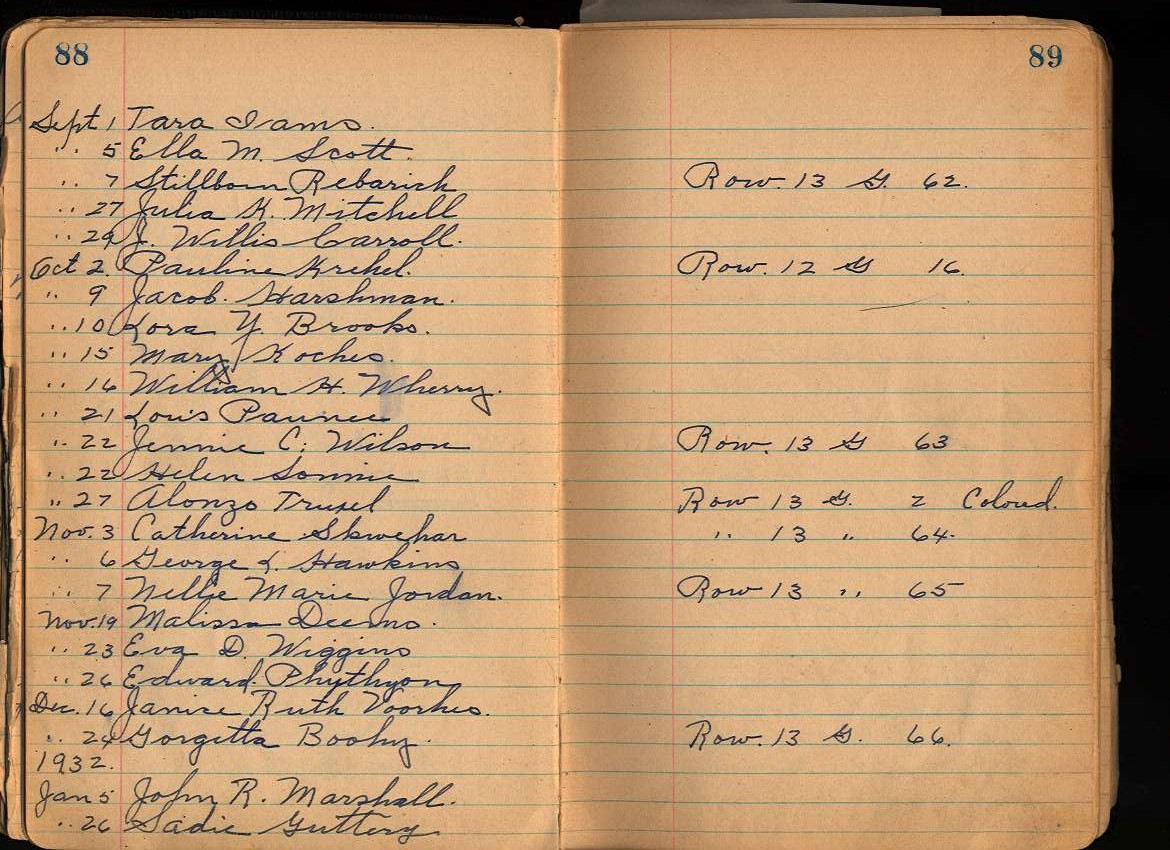 88
89
Sept 1 Tara Iams.
" 5 Ella M. Scott.
" 7 Stillborn Rebarich Row. 13 G. 62.
" 27 Julia K. Mitchell
" 29 J. Willis Carroll.
Oct 2. Pauline Krehel. Row. 12 G 16.
" 9 Jacob. Harshman.
" 10 Lora Y. Brooks.
" 15 Mary Koches.
" 16 William H. Wherry.
" 21 Louis Paunee
" 22 Jennie C. Wilson Row. 13 G 63
" 22 Helen Sonnie
" 27 Alonzo Truxel Row 13 G. 2 Colored.
Nov. 3 Catherine Skwehar " 13 " 64.
" 6 George L. Hawkins
" 7 Nellie Marie Jordan. Row 13 " 65
Nov. 19 Malissa Deems.
" 23 Eva D. Wiggins
" 26 Edward. Phythyon
Dec. 16 Janice Ruth Voorhes.
" 24 Gorgetta Boohy. Row. 13 G. 66.
1932.
Jan 5 John R. Marshall.
" 26 Sadie Guttery